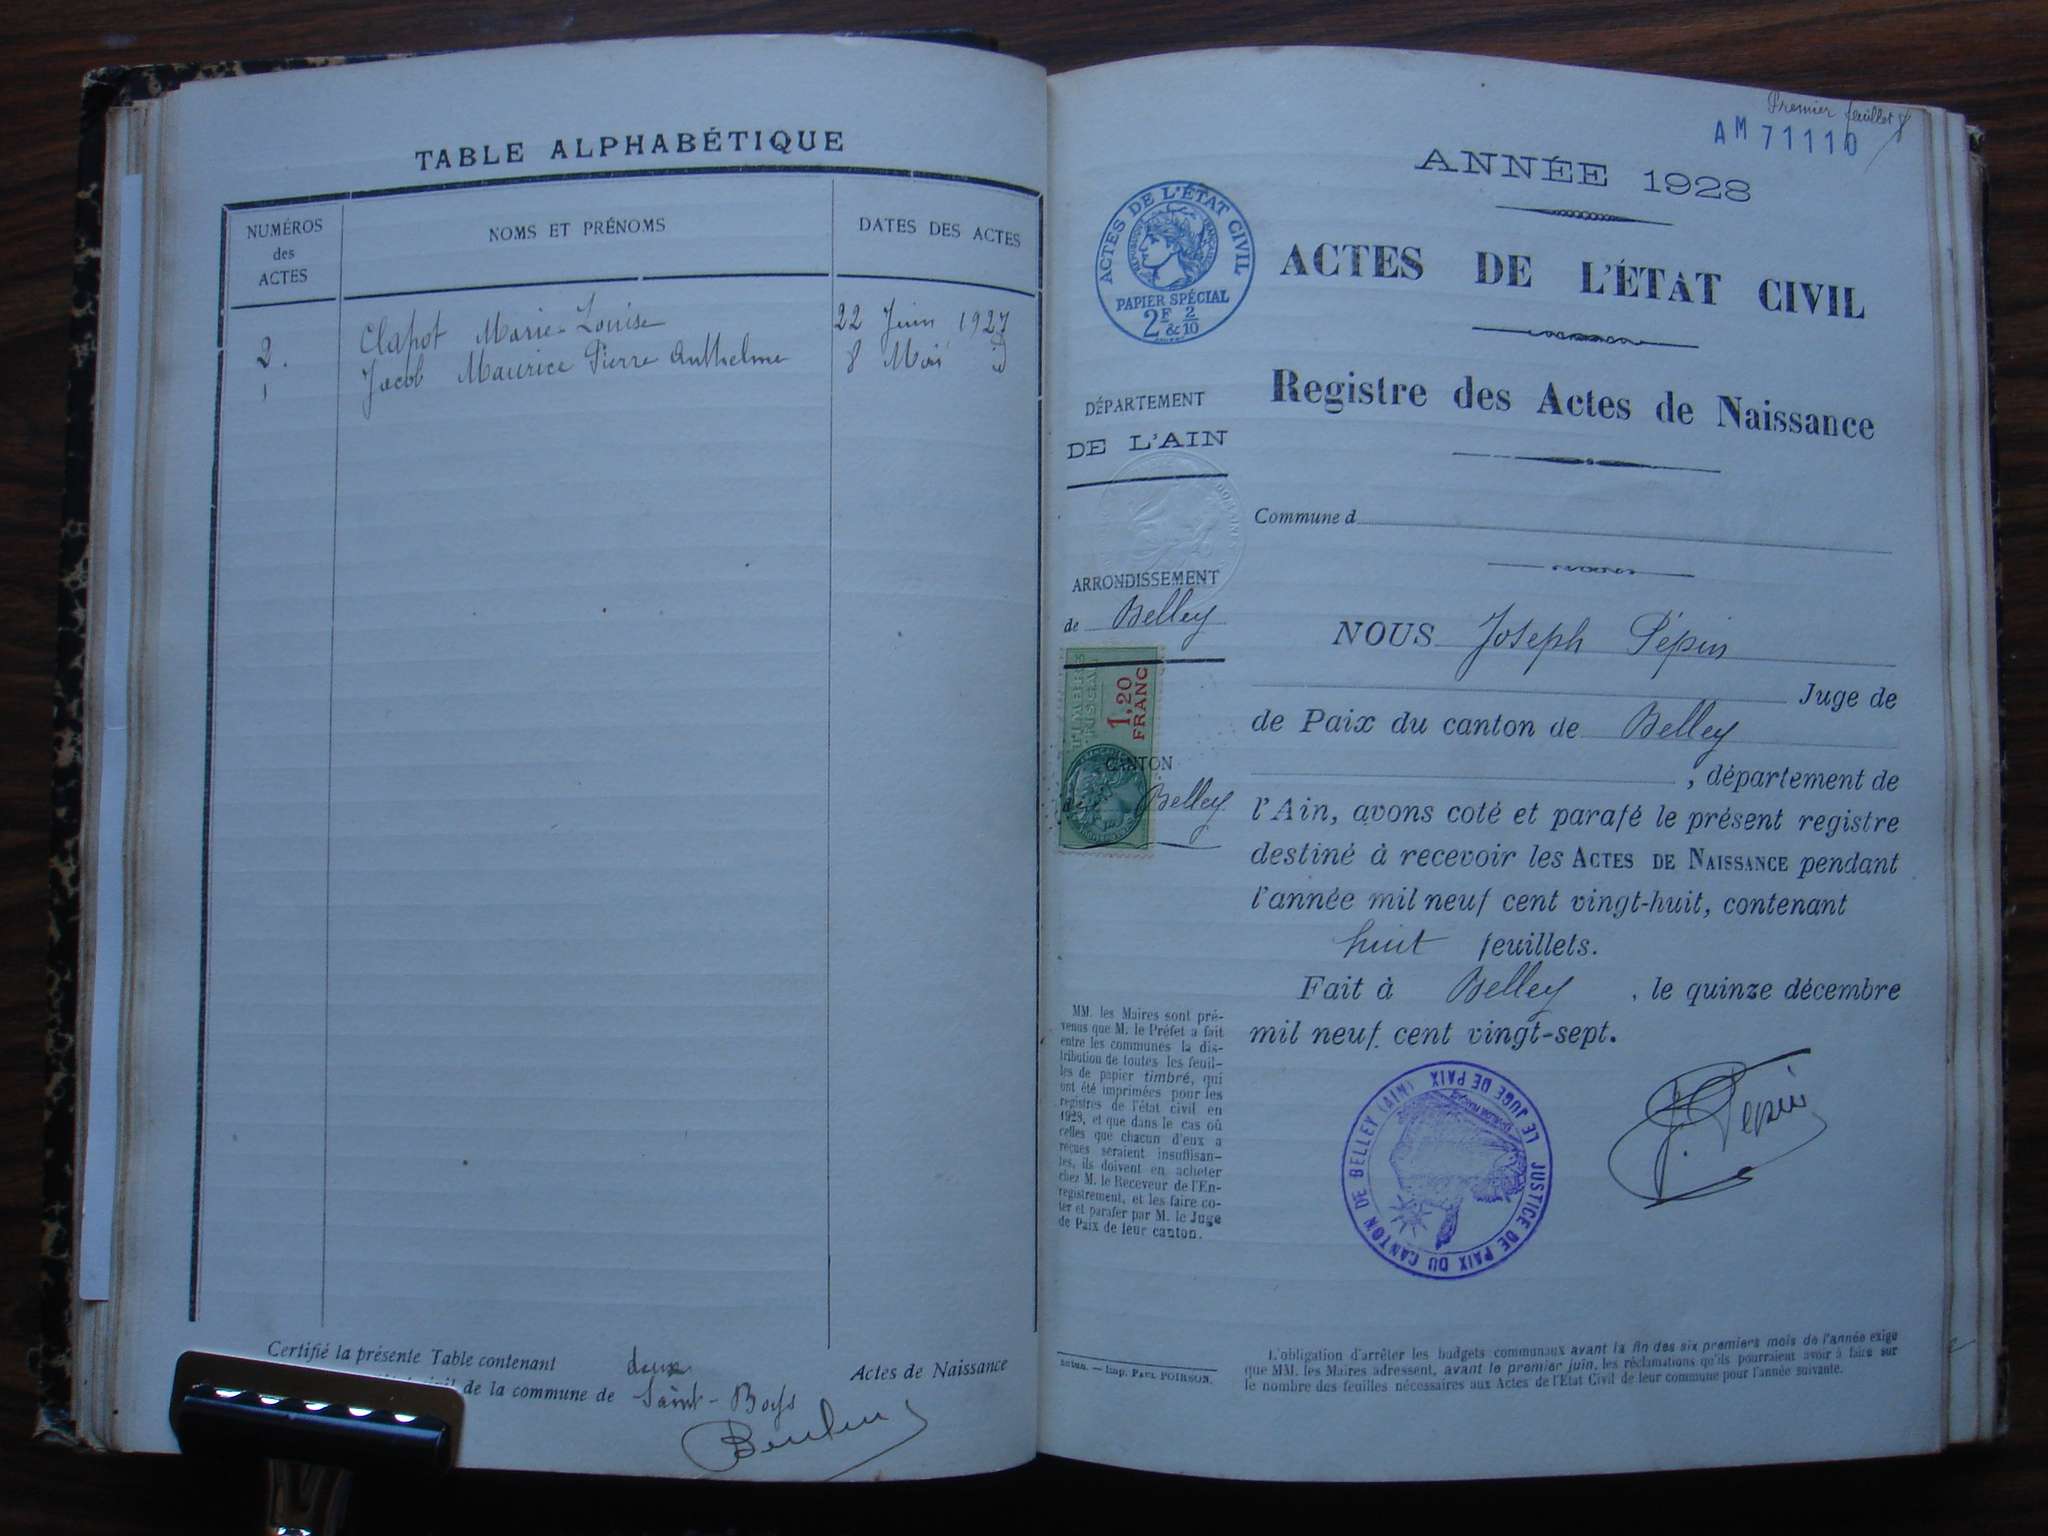 TABLE ALPHABÉTIQUE
NUMÉROS
des
ACTES
NOMS ET PRÉNOMS
DATES DES ACTES
2. Clapot Marie-Louise 22 Juin 1927
1 Jacob Maurice Pierre Anthelme 8 Mai id
Certifié la présente Table contenant deux Actes de Naissance
de la commune de Saint-Boys
Premier feuillet
AM 71110
ANNÉE 1928
ACTES DE L'ÉTAT CIVIL
RÉPUBLIQUE FRANÇAISE
PAPIER SPÉCIAL
2F & 2/10
ACTES DE L'ÉTAT CIVIL
Registre des Actes de Naissance
DÉPARTEMENT
DE L'AIN
Commune d
ARRONDISSEMENT
de Belley
1,20
FRANC
CANTON
Belley
NOUS Joseph Pépin
Juge de
de Paix du canton de Belley
, département de
l'Ain, avons coté et parafé le présent registre
destiné à recevoir les ACTES DE NAISSANCE pendant
l'année mil neuf cent vingt-huit, contenant
huit feuillets.
Fait à Belley, le quinze décembre
mil neuf cent vingt-sept.
MM. les Maires sont pré-
venus que M. le Préfet a fait
entre les communes la dis-
tribution de toutes les feuil-
les de papier timbré, qui
ont été imprimées pour les
registres de l'état civil en
1928, et que dans le cas où
celles que chacun d'eux a
reçues seraient insuffisan-
tes, ils doivent en acheter
chez M. le Receveur de l'En-
registrement, et les faire co-
ter et parafer par M. le Juge
de Paix de leur canton.
JUSTICE DE PAIX DU CANTON DE BELLEY (AIN)
LE JUGE DE PAIX
J. Pépin
Imp. PAUL POIRSON.
L'obligation d'arrêter les budgets communaux avant la fin des six premiers mois de l'année exige
que MM. les Maires adressent, avant le premier juin, les réclamations qu'ils pourraient avoir à faire sur
le nombre des feuilles nécessaires aux Actes de l'Etat Civil de leur commune pour l'année suivante.